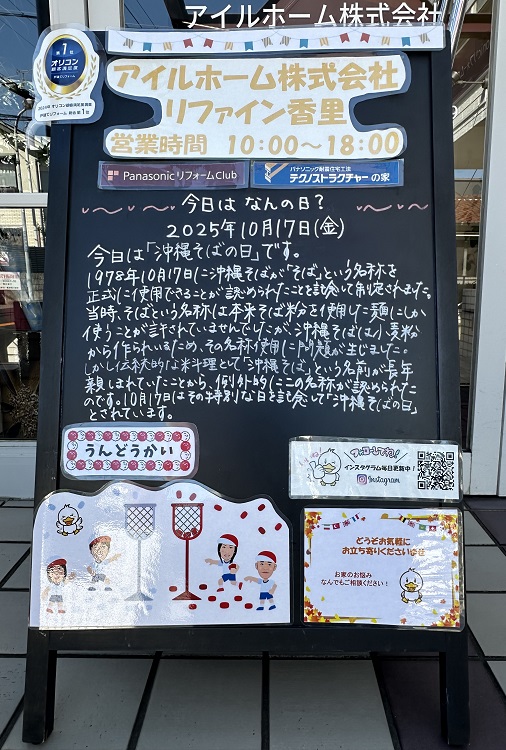 アイルホーム株式会社
第1位
オリコン
顧客満足度
戸建てリフォーム
アイルホーム株式会社
リファイン香里
営業時間 10:00〜18:00
Panasonic リフォームClub
パナソニック耐震住宅工法
テクノストラクチャーの家
今日は なんの日?
2025年10月17日(金)
今日は「沖縄そばの日」です。
1978年10月17日に沖縄そばが「そば」という名称を
正式に使用できることが認められたことを記念して制定されました。
当時、そばという名称は本来そば粉を使用した麺にしか
使うことが許されていませんでしたが、沖縄そばは小麦粉
から作られているため、その名称使用に問題が生じました。
しかし伝統的な料理として「沖縄そば」という名前が長年
親しまれていたことから、例外的にこの名称が認められた
のです。10月17日はその特別な日を記念して「沖縄そばの日」
とされています。
うんどうかい
フォローしてね!
インスタグラム毎日更新中!
Instagram
どうぞお気軽に
お立ち寄りくださいませ
お家のお悩み
なんでもご相談ください!